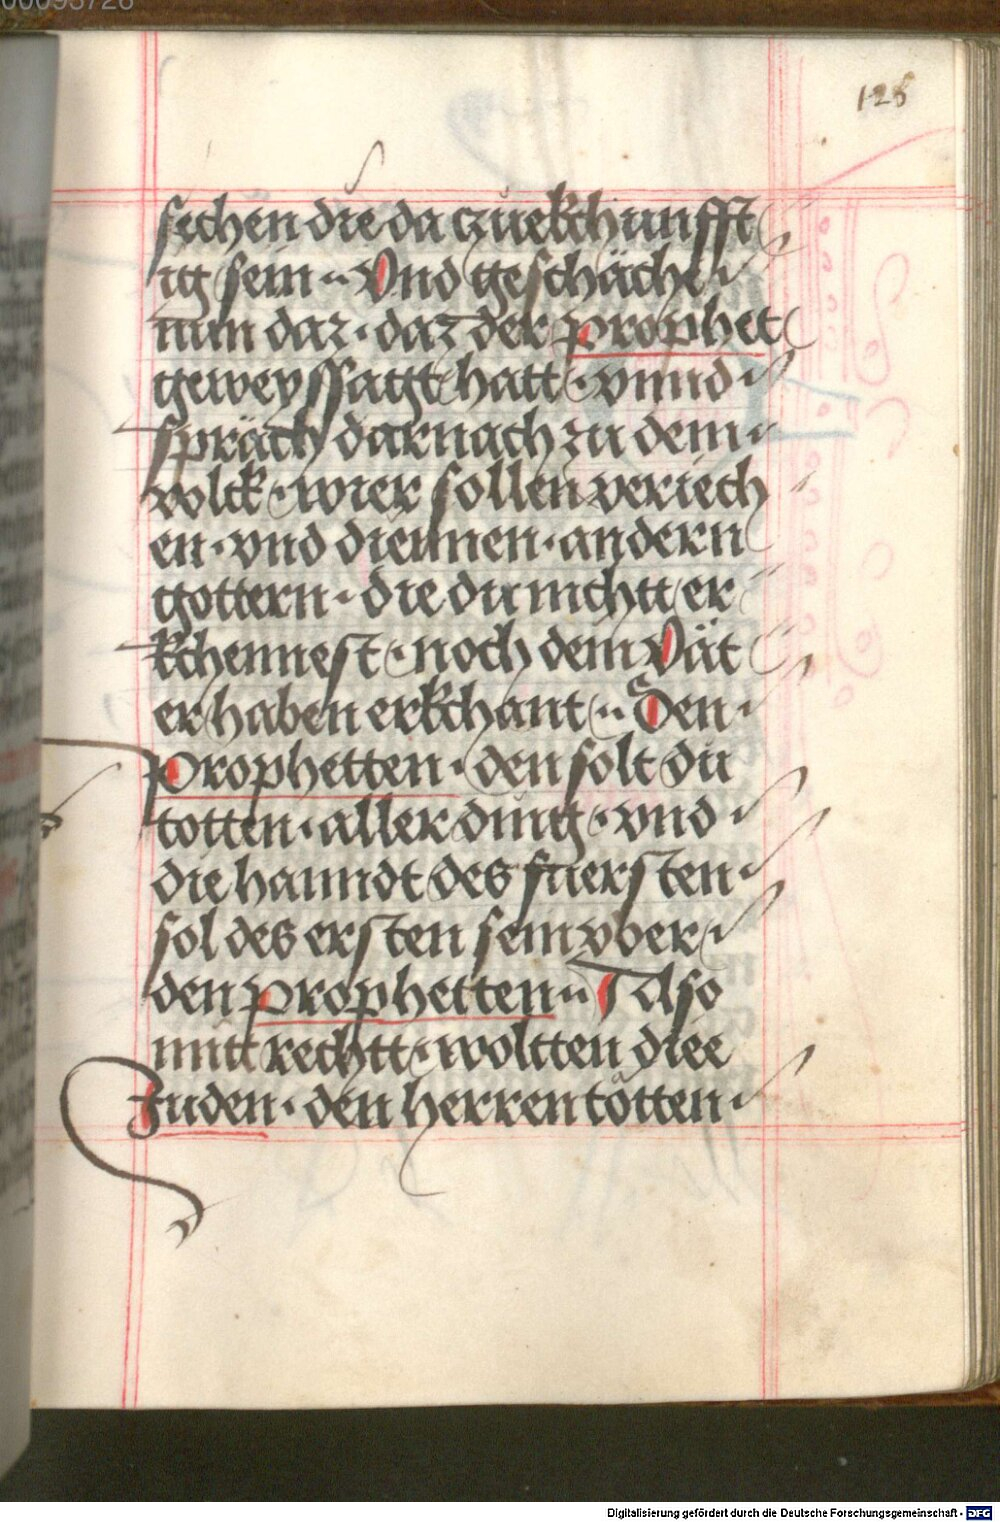 00093726
128
sechen die da czuekchunfft
ig sein ·· Vnd geschäche ·
nun daz · daz der prophet
geweyssagt hatt · vnnd ·
spräch darnach zu dem ·
volck · wier sollen veriech
en · vnd diennen · andern
gottern · die du nichtt er
kchennest · noch dem Vät
er haben erkchant ·· Den ·
Prophetten · den solt du
totten · aller ding · vnd ·
die hanndt des fuersten ·
sol des ersten sein vber ·
den prophetten ·· Also
mitt rechtt · woltten diee
Juden · den herren tötten ·
Digitalisierung gefördert durch die Deutsche Forschungsgemeinschaft · DFG